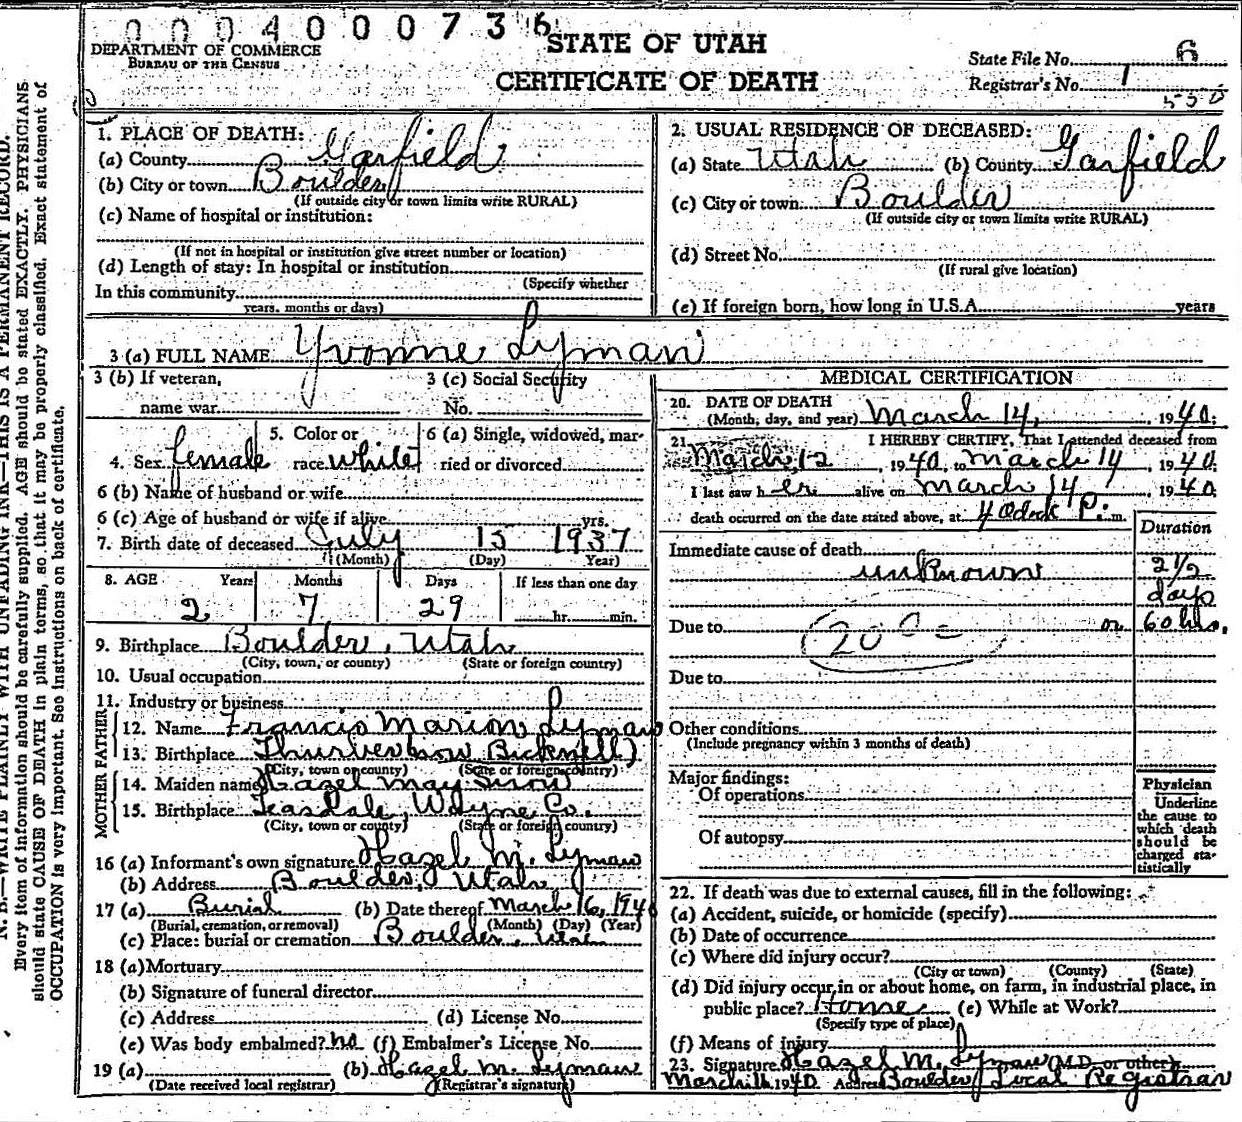 0 0 0 4 0 0 0 7 3 6
DEPARTMENT OF COMMERCE
BUREAU OF THE CENSUS
STATE OF UTAH
CERTIFICATE OF DEATH
State File No. 6
Registrar's No. 1
550
1. PLACE OF DEATH:
(a) County Garfield
(b) City or town Boulder
(If outside city or town limits write RURAL)
(c) Name of hospital or institution:
(If not in hospital or institution give street number or location)
(d) Length of stay: In hospital or institution
(Specify whether
In this community
years, months or days)
2. USUAL RESIDENCE OF DECEASED:
(a) State Utah (b) County Garfield
(c) City or town Boulder
(If outside city or town limits write RURAL)
(d) Street No.
(If rural give location)
(e) If foreign born, how long in U.S.A. years
3 (a) FULL NAME Yvonne Lyman
3 (b) If veteran,
name war
3 (c) Social Security
No.
4. Sex female
5. Color or
race white
6 (a) Single, widowed, mar-
ried or divorced
6 (b) Name of husband or wife
6 (c) Age of husband or wife if alive yrs.
7. Birth date of deceased July 15 1937
(Month) (Day) Year)
8. AGE Years Months Days If less than one day
2 7 29 hr. min.
9. Birthplace Boulder, Utah
(City, town, or county) (State or foreign country)
10. Usual occupation
11. Industry or business
FATHER
12. Name Francis Marion Lyman
13. Birthplace Thurber (now Bicknell)
(City, town or county) (State or foreign country)
MOTHER
14. Maiden name Hazel May Snow
15. Birthplace Teasdale, Wayne Co.
(City, town or county) (State or foreign country)
16 (a) Informant's own signature Hazel M. Lyman
(b) Address Boulder, Utah
17 (a) Burial (b) Date thereof March 16, 1940
(Burial, cremation, or removal) (Month) (Day) (Year)
(c) Place: burial or cremation Boulder, Utah
18 (a) Mortuary
(b) Signature of funeral director
(c) Address (d) License No.
(e) Was body embalmed? no (f) Embalmer's License No.
19 (a) (b) Hazel M. Lyman
(Date received local registrar) (Registrar's signature)
MEDICAL CERTIFICATION
20. DATE OF DEATH
(Month, day, and year) March 14, 1940.
21. I HEREBY CERTIFY, That I attended deceased from
March 12, 1940, to March 14 1940.
I last saw her alive on March 14 1940.
death occurred on the date stated above, at 4 Oclock P. m.
Duration
Immediate cause of death
unknown 2 1/2
days
Due to or 60 hrs.
200
Due to
Other conditions
(Include pregnancy within 3 months of death)
Major findings:
Of operations
Of autopsy
Physician
Underline
the cause to
which death
should be
charged sta-
tistically
22. If death was due to external causes, fill in the following:
(a) Accident, suicide, or homicide (specify)
(b) Date of occurrence
(c) Where did injury occur?
(City or town) (County) (State)
(d) Did injury occur in or about home, on farm, in industrial place, in
public place? Home (e) While at Work?
(Specify type of place)
(f) Means of injury
23. Signature Hazel M. Lyman (M.D. or other)
March 16 1940 Address Boulder Local Registrar
N. B.—WRITE PLAINLY WITH UNFADING INK—THIS IS A PERMANENT RECORD.
Every item of information should be carefully supplied. AGE should be stated EXACTLY. PHYSICIANS
should state CAUSE OF DEATH in plain terms, so that it may be properly classified. Exact statement of
OCCUPATION is very important. See instructions on back of certificate.